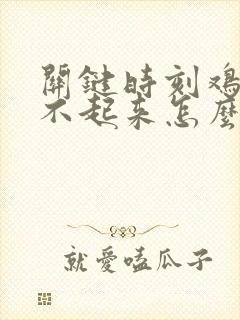 關鍵時刻鸡
不起来怎麼
就愛嗑瓜子